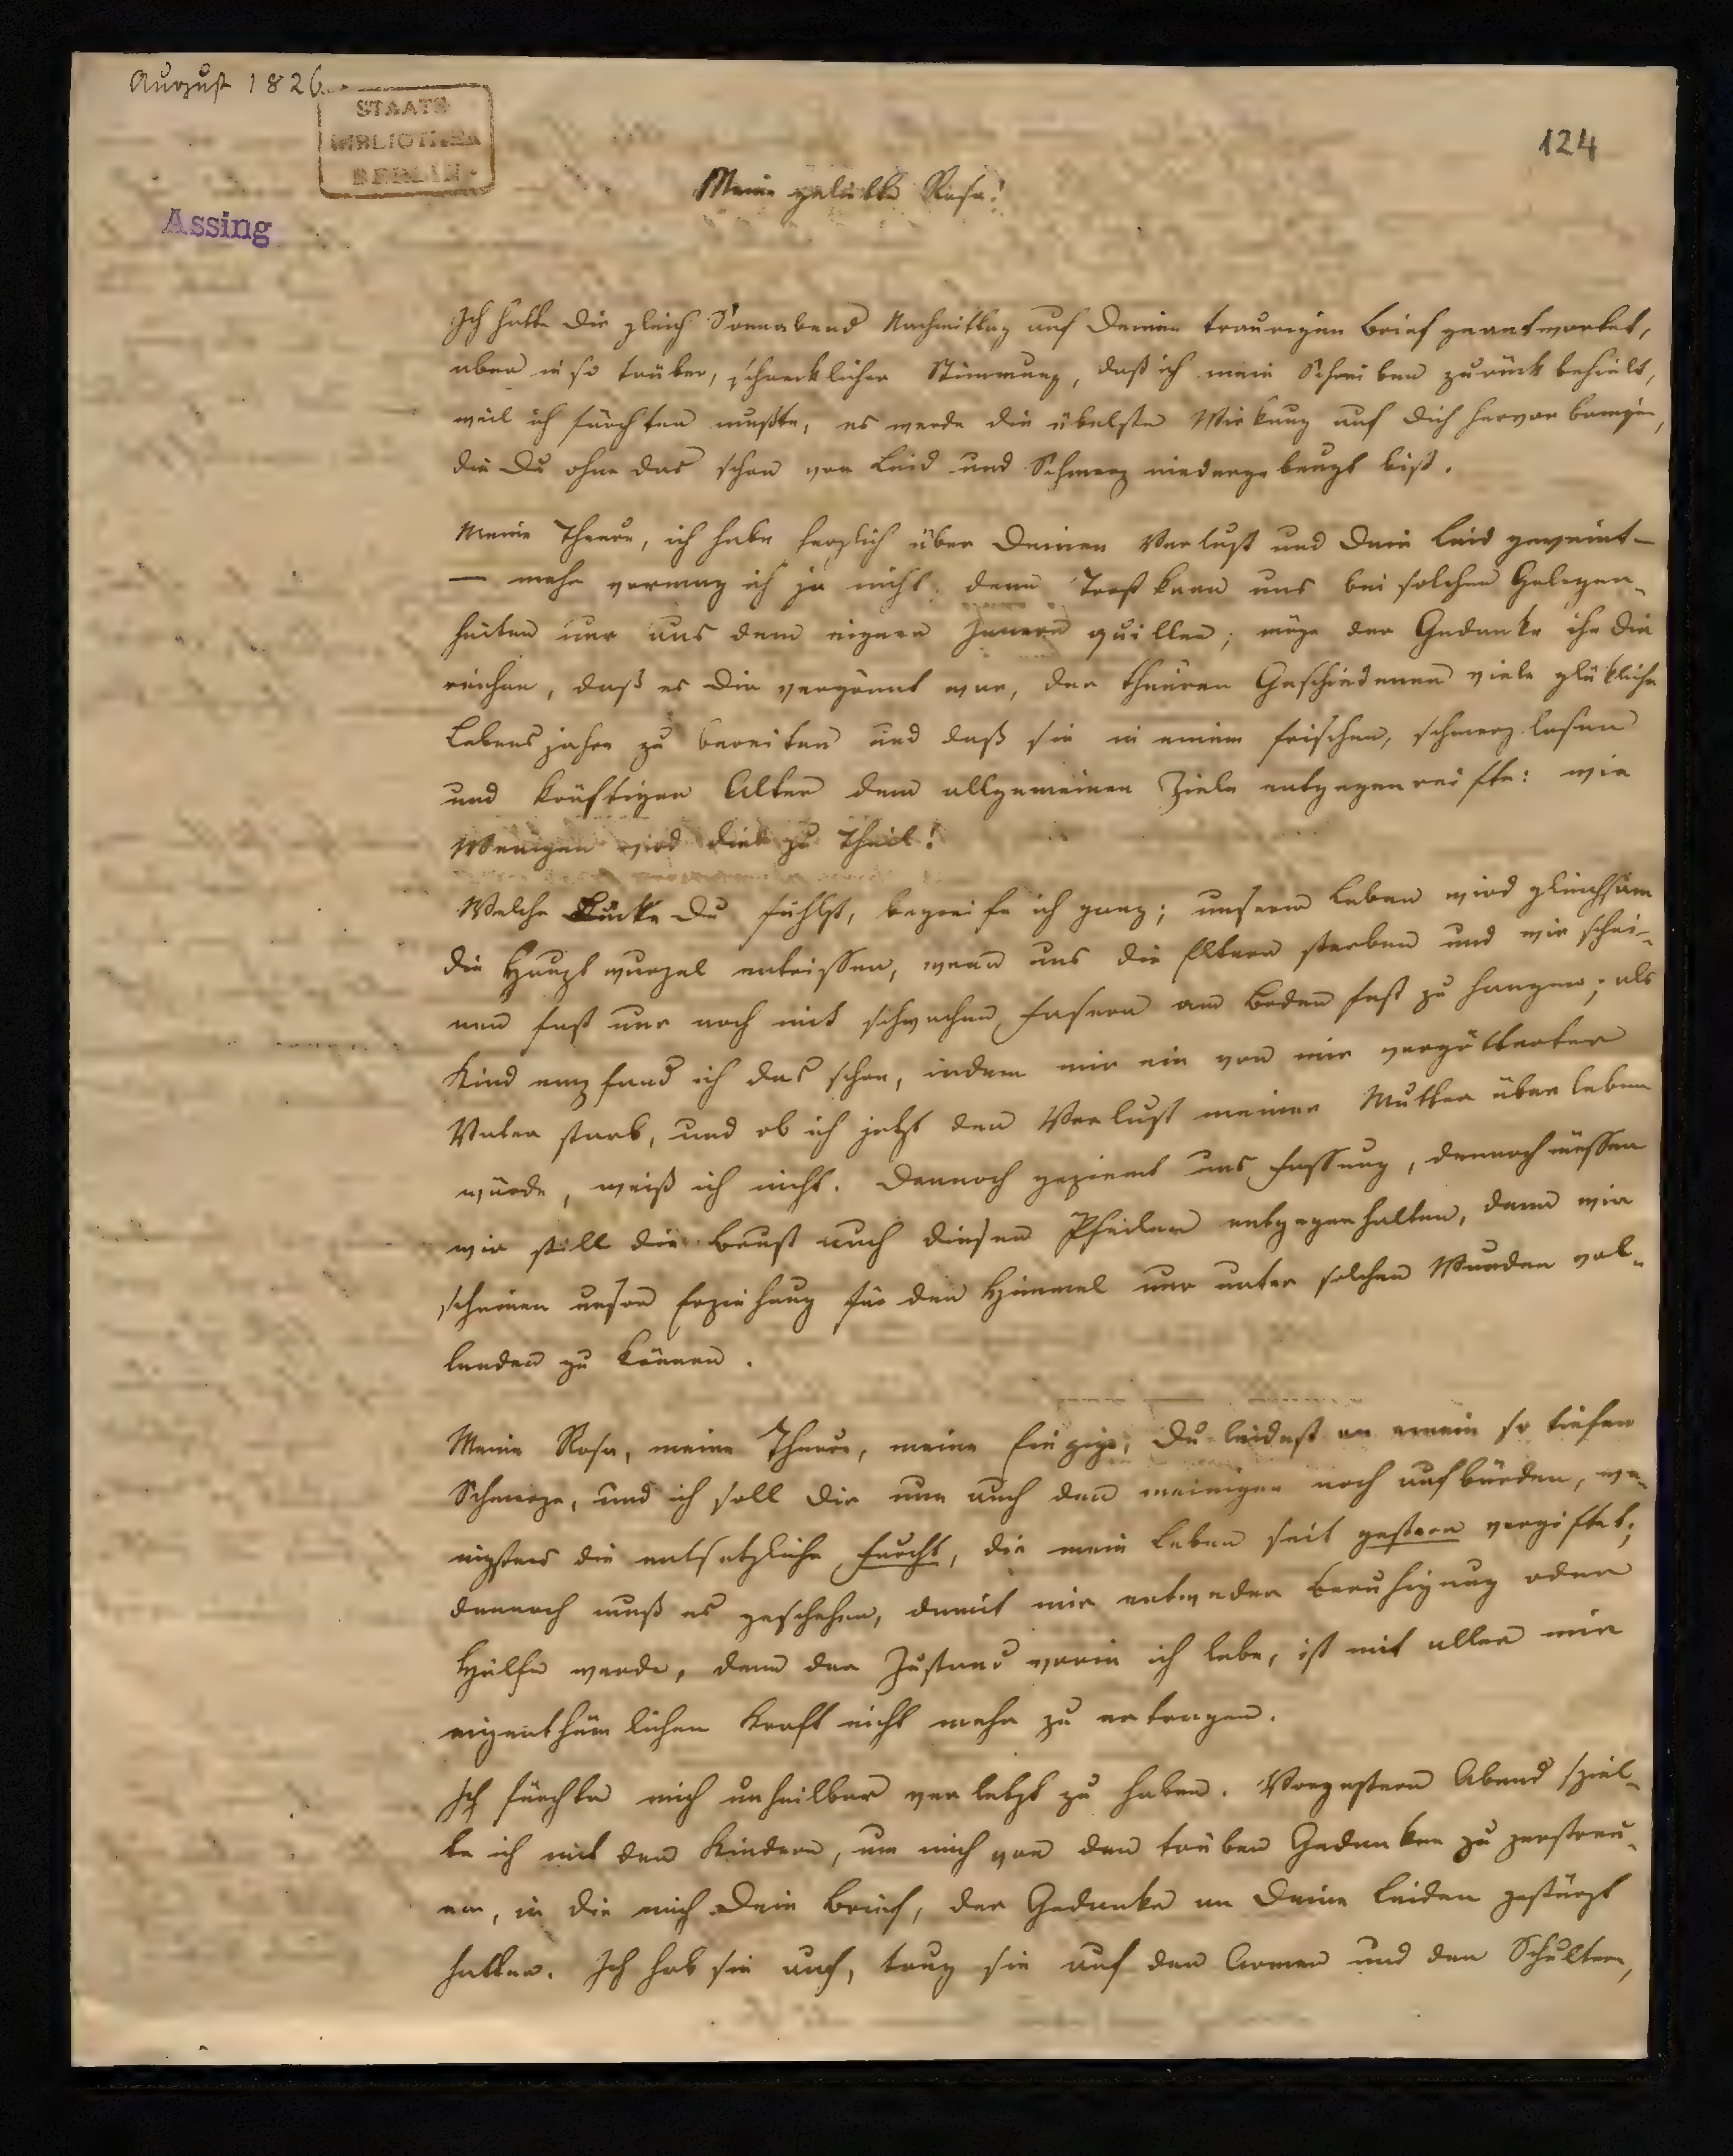 August 1826.
STAATS
BIBLIOTHEK
BERLIN
124
Assing
Meine geliebte Rosa!
Ich hatte Dir gleich Sonnabend Nachmittag auf Deinen traurigen Brief geantwortet,
aber in so trüber, schrecklicher Stimmung, daß ich mein Schreiben zurück behielt,
weil ich fürchten mußte, es werde die übelste Wirkung auf Dich hervor bringen,
die Du ohne das schon von Leid und Schmerz niedergebeugt bist.
Meine Theure, ich habe herzlich über Deinen Verlust und Dein Leid geweint —
— mehr vermag ich ja nicht, denn Trost kann uns bei solchen Gelegen-
heiten nur aus dem eignen Innern quillen; möge der Gedanke ihn Dir
reichen, daß es Dir vergönnt war, der theuren Geschiedenen viele glükliche
Lebensjahre zu bereiten und daß sie in einem frischen, schmerzlosen
und kräftigen Alter dem allgemeinen Ziele entgegenreifte: wie
Wenigen wird dies zu Theil!
Welche Lücke Du fühlst, begreife ich ganz; unserm Leben wird gleichsam
die Hauptwurzel entrissen, wenn uns die Eltern sterben und wir schei-
nen fast nur noch mit schwachen Fasern am Boden fest zu hangen; als
Kind empfand ich das schon, indem mir ein von mir vergötterter
Vater starb, und ob ich jetzt den Verlust meiner Mutter überleben
würde, weiß ich nicht. Dennoch geziemt uns Fassung, dennoch müssen
wir still die Brust auch diesen Pfeilen entgegenhalten, denn wir
scheinen unsre Erziehung für den Himmel nur unter solchen Wunden vol-
lenden zu können.
Meine Rosa, meine Theure, meine Einzige, Du leidest an einem so tiefen
Schmerze, und ich soll Dir nun auch den meinigen noch aufbürden, we-
nigstens die entsetzliche Furcht, die mein Leben seit gestern vergiftet;
dennoch muß es geschehen, damit mir entweder Beruhigung oder
Hülfe werde, denn der Zustand worin ich lebe, ist mit aller mir
eigenthümlichen Kraft nicht mehr zu ertragen.
Ich fürchte mich unheilbar verletzt zu haben. Vorgestern Abend spiel-
te ich mit den Kindern, um mich von den trüben Gedanken zu zerstreu-
en, in die mich Dein Brief, der Gedanke an Deine Leiden gestürzt
hatten. Ich hob sie auf, trug sie auf den Armen und den Schultern,